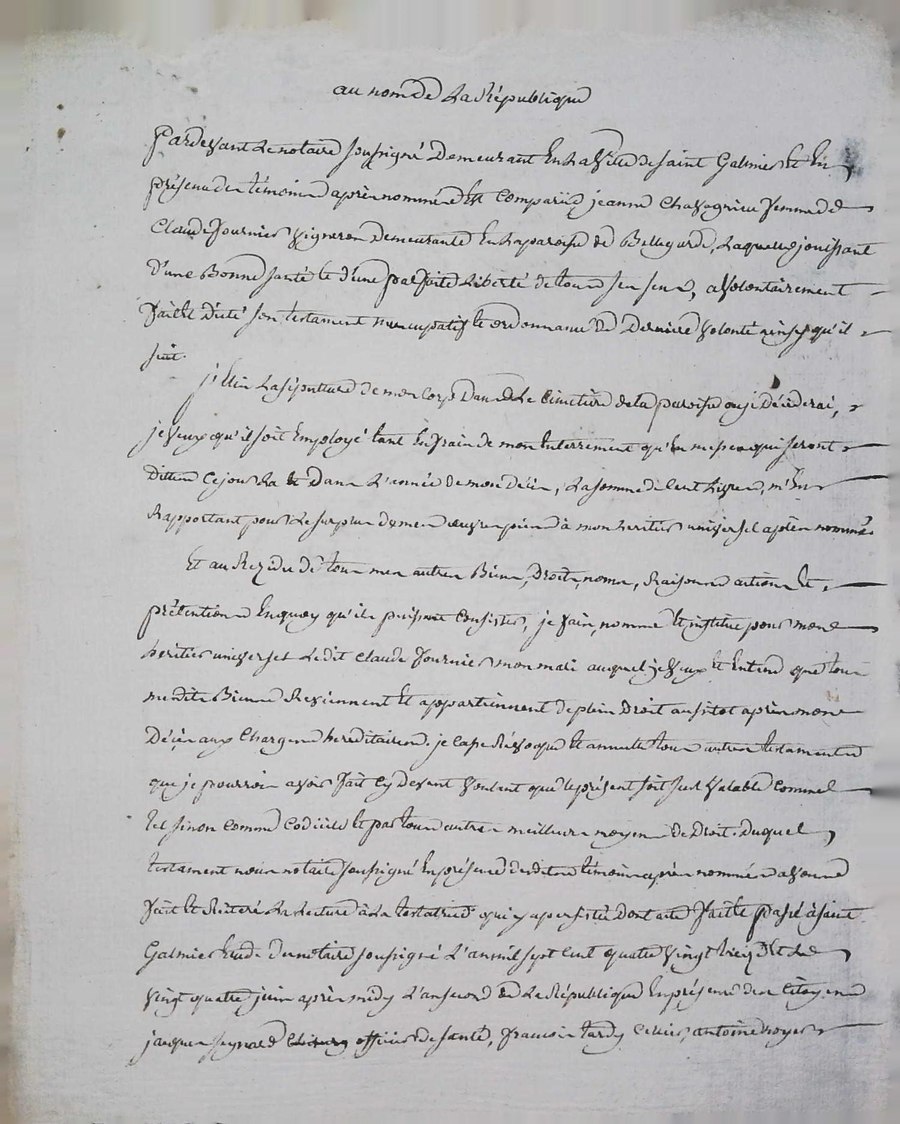 au nom de La République
Pardevant Le notaire soussigné Demeurant En La Ville de Saint Galmier Et En
présence des témoins après nommés Est Comparüe jeanne Chavagnieu femme de
Claude fournier Vigneron demeurante En La paroisse de Bellegarde, Laquelle jouissant
d'une Bonne santé Et d'une parfaite Liberté de tous ses sens, a volontairement
fait Et dicté son testament nuncupatif Et ordonnance de Derniere volonté ainsy qu'il
suit.
j'Elis La sépulture de mon Corps Dans Le Cimetiere de la paroisse ou je Décederai,
je Veux qu'il soit Employé tant En frais de mon Enterrement qu'En messes qui seront
dittes Ce jour La Et Dans L'année de mon Décès, La somme de Cent Livres, m'En
Rapportant pour Le surplus de mes œuvres pies à mon heritier universel après nommé.
Et au Rezidu de tous mes autres Biens, Droits, noms, Raisons actions Et
prétentions En quoy qu'ils puissent Consister, je fais, nomme Et institue pour mon
héritier universel Ledit Claude fournier mon mari auquel je Veux Et Entend que tous
mesdits Biens Reviennent Et appartiennent de plein Droit aussitot après mon
Décès aux Charges hereditaires. je Casse Révoque Et annulle tous autres testaments
que je pourrois avoir fait Cy devant voulant que le présent soit seul Valable Comme
tel sinon Comme Codicile Et par tous autres meilleurs moyens de Droit. duquel
testament nous notaire soussigné En présence desdits témoins après nommés avons
fait Et Réiteré La Lecture à La testatrice qui y a persisté Dont acte fait Et passé à Saint
Galmier Etude du notaire soussigné L'an mil sept Cent quatre vingt treize Et Le
vingt quatre juin après midy L'an second de La République En présence des Citoyens
jacques seynard officier de santé, francois tardy Cellier, antoine royer